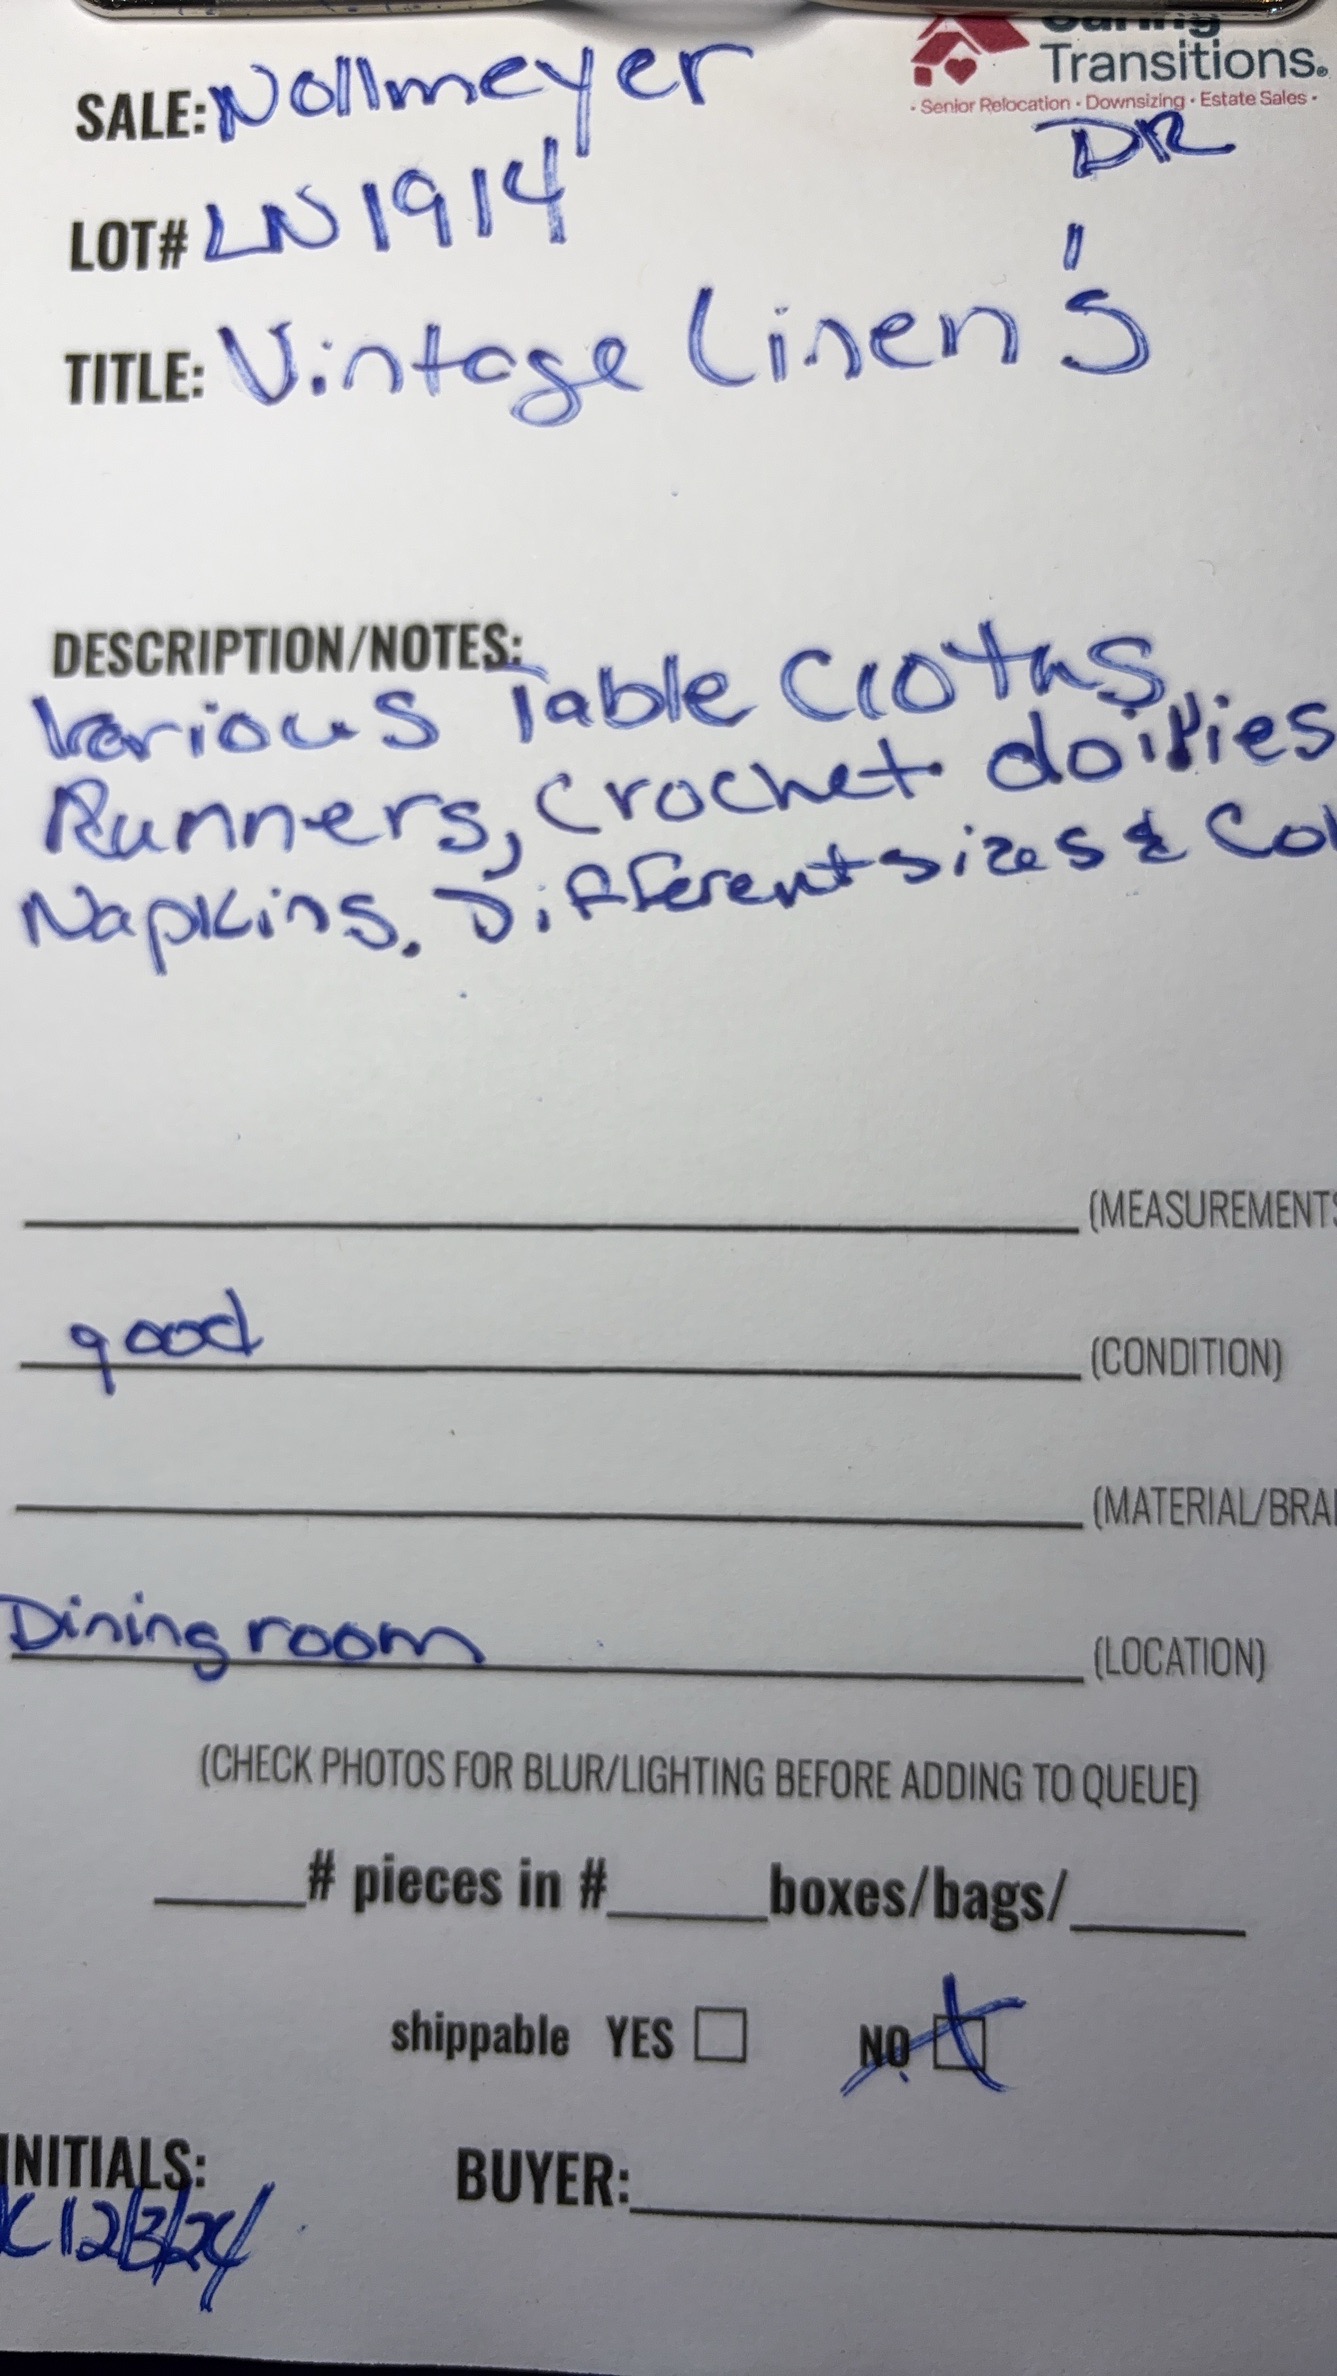 Caring
Transitions®
· Senior Relocation · Downsizing · Estate Sales ·
SALE: Nollmeyer
DR
LOT# LN1914
TITLE: Vintage Linen's
DESCRIPTION/NOTES:
Various Table Cloths,
Runners, Crochet doilies
Napkins. Different sizes & Col
(MEASUREMENTS
good (CONDITION)
(MATERIAL/BRA
Dining room (LOCATION)
(CHECK PHOTOS FOR BLUR/LIGHTING BEFORE ADDING TO QUEUE)
# pieces in # boxes/bags/
shippable YES NO
INITIALS: BUYER:
C 12/3/24